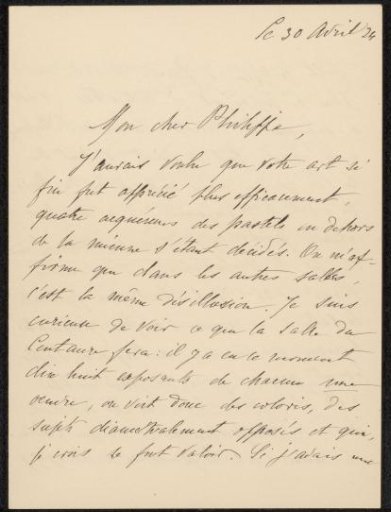 le 30 Avril 24
Mon cher Philippe,
J'aurais voulu que votre art si
fin fut apprécié plus efficacement,
quatre acquereurs des pastels en dehors
de la mienne s'étant décidés. On m'af-
firme que dans les autres salles,
c'est la même désillusion. Je suis
curieuse de voir ce que la salle du
Centaure fera: il y a en ce moment
dix huit exposants de chacun une
oeuvre, on voit donc des coloris, des
sujets diamétralement opposés et qui,
je crois se font valoir. Si j'avais une